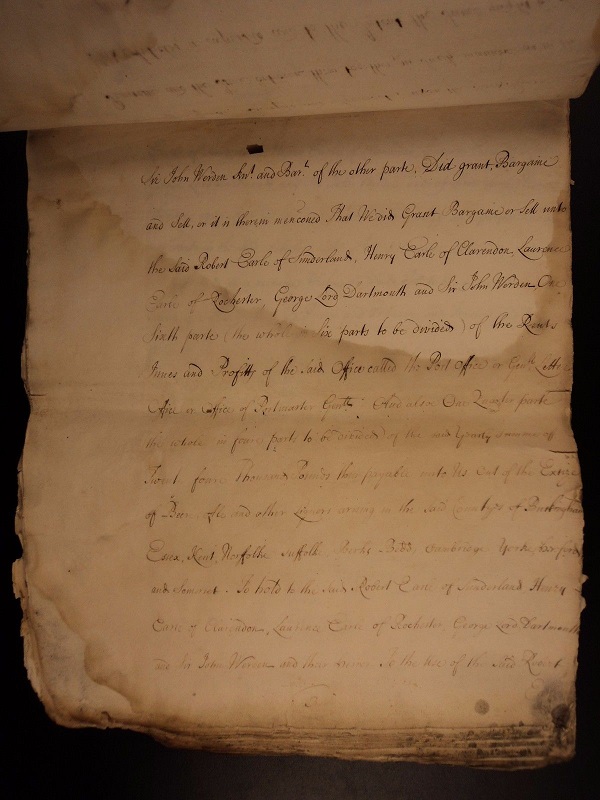 Sir John Worden Knt. and Bart. of the other parte, Did grant, Bargaine
and Sell, or it is therein menconed That We did Grant Bargaine or Sell unto
the said Robert Earle of Sunderland, Henry Earle of Clarendon, Laurence
Earle of Rochester, George Lord Dartmouth and Sir John Worden One
Sixth parte (the whole in Six parts to be divided) of the Rents
Issues and Profitts of the said Office called the Post Office or Genll. Letter
Office or Office of Postmaster Genll. And also One Quarter parte
the whole in foure parts to be divided of the said yearly summe of
Twenty foure Thousand Pounds thus payable unto Us out of the Excize
of Beer, Ale and other Liquors ariseing in the said Countyes of Buckingham
Essex, Kent, Norfolke Suffolk, Berks, Bedd, Cambridge, Yorke, Hertford
and Somerset. To hold to the said Robert Earle of Sunderland Henry
Earle of Clarendon, Laurence Earle of Rochester, George Lord Dartmouth
and Sir John Worden and their heires To the use of the said Robert